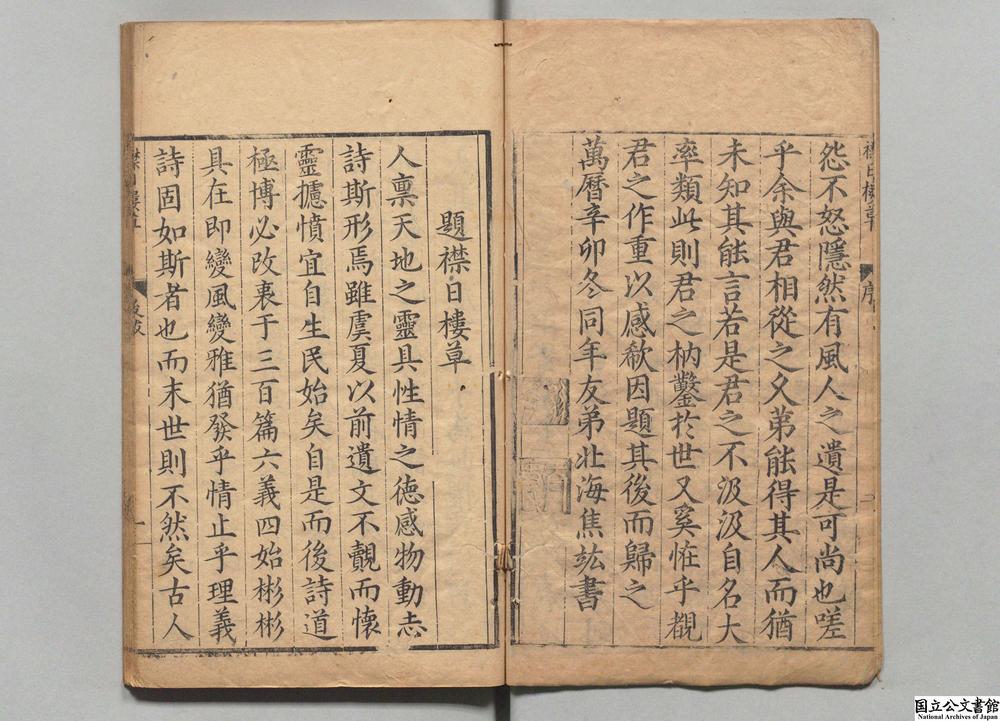 怨不怒隱然有風人之遺是可尚也嗟
乎余與君相從之久弟能得其人而猶
未知其能言若是君之不汲汲自名大
率類此則君之枘鑿於世又奚恠乎覩
君之作重以感欷因題其後而歸之
萬曆辛卯冬同年友弟北海焦竑書
題襟日樓草
人稟天地之靈具性情之德感物動志
詩斯形焉雖虞夏以前遺文不覿而懷
靈攄憤宜自生民始矣自是而後詩道
極博必攷衷于三百篇六義四始彬彬
具在即變風變雅猶發乎情止乎理義
詩固如斯者也而末世則不然矣古人
国立公文書館
National Archives of Japan